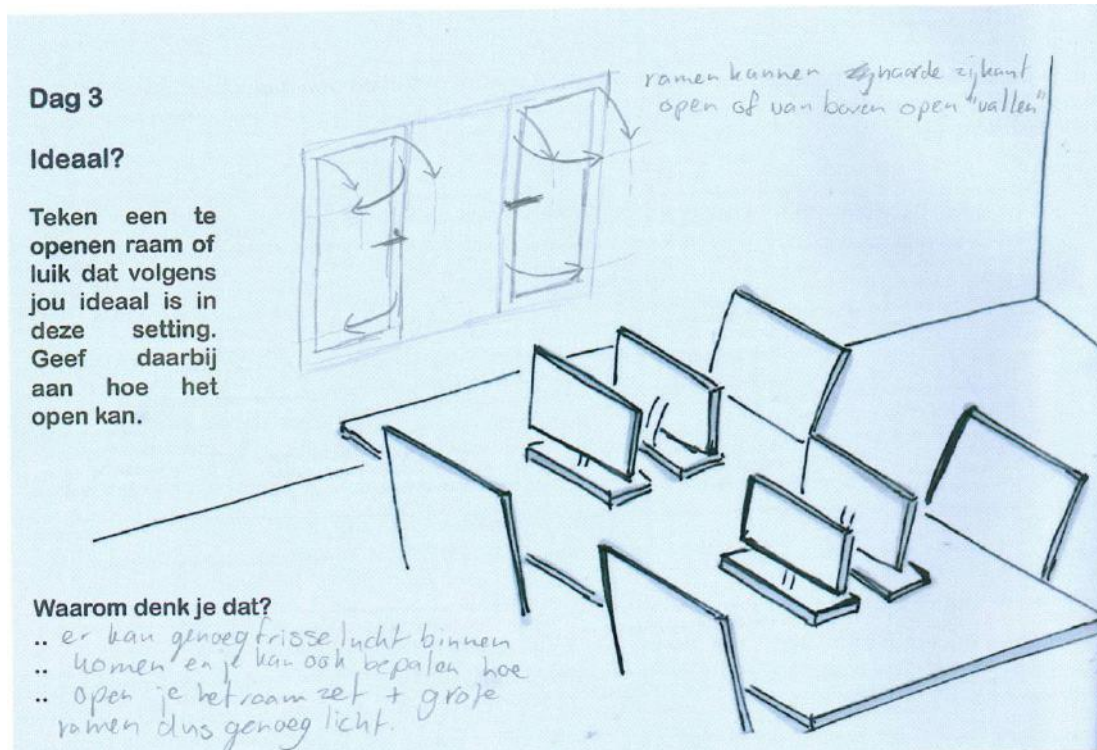 Dag 3
Ideaal?
Teken een te
openen raam of
luik dat volgens
jou ideaal is in
deze setting.
Geef daarbij
aan hoe het
open kan.
ramen kunnen naar de zijkant
open of van boven open "vallen"
Waarom denk je dat?
.. er kan genoeg frisse lucht binnen
.. komen en je kan ook bepalen hoe
.. open je het raam zet + grote
ramen dus genoeg licht.